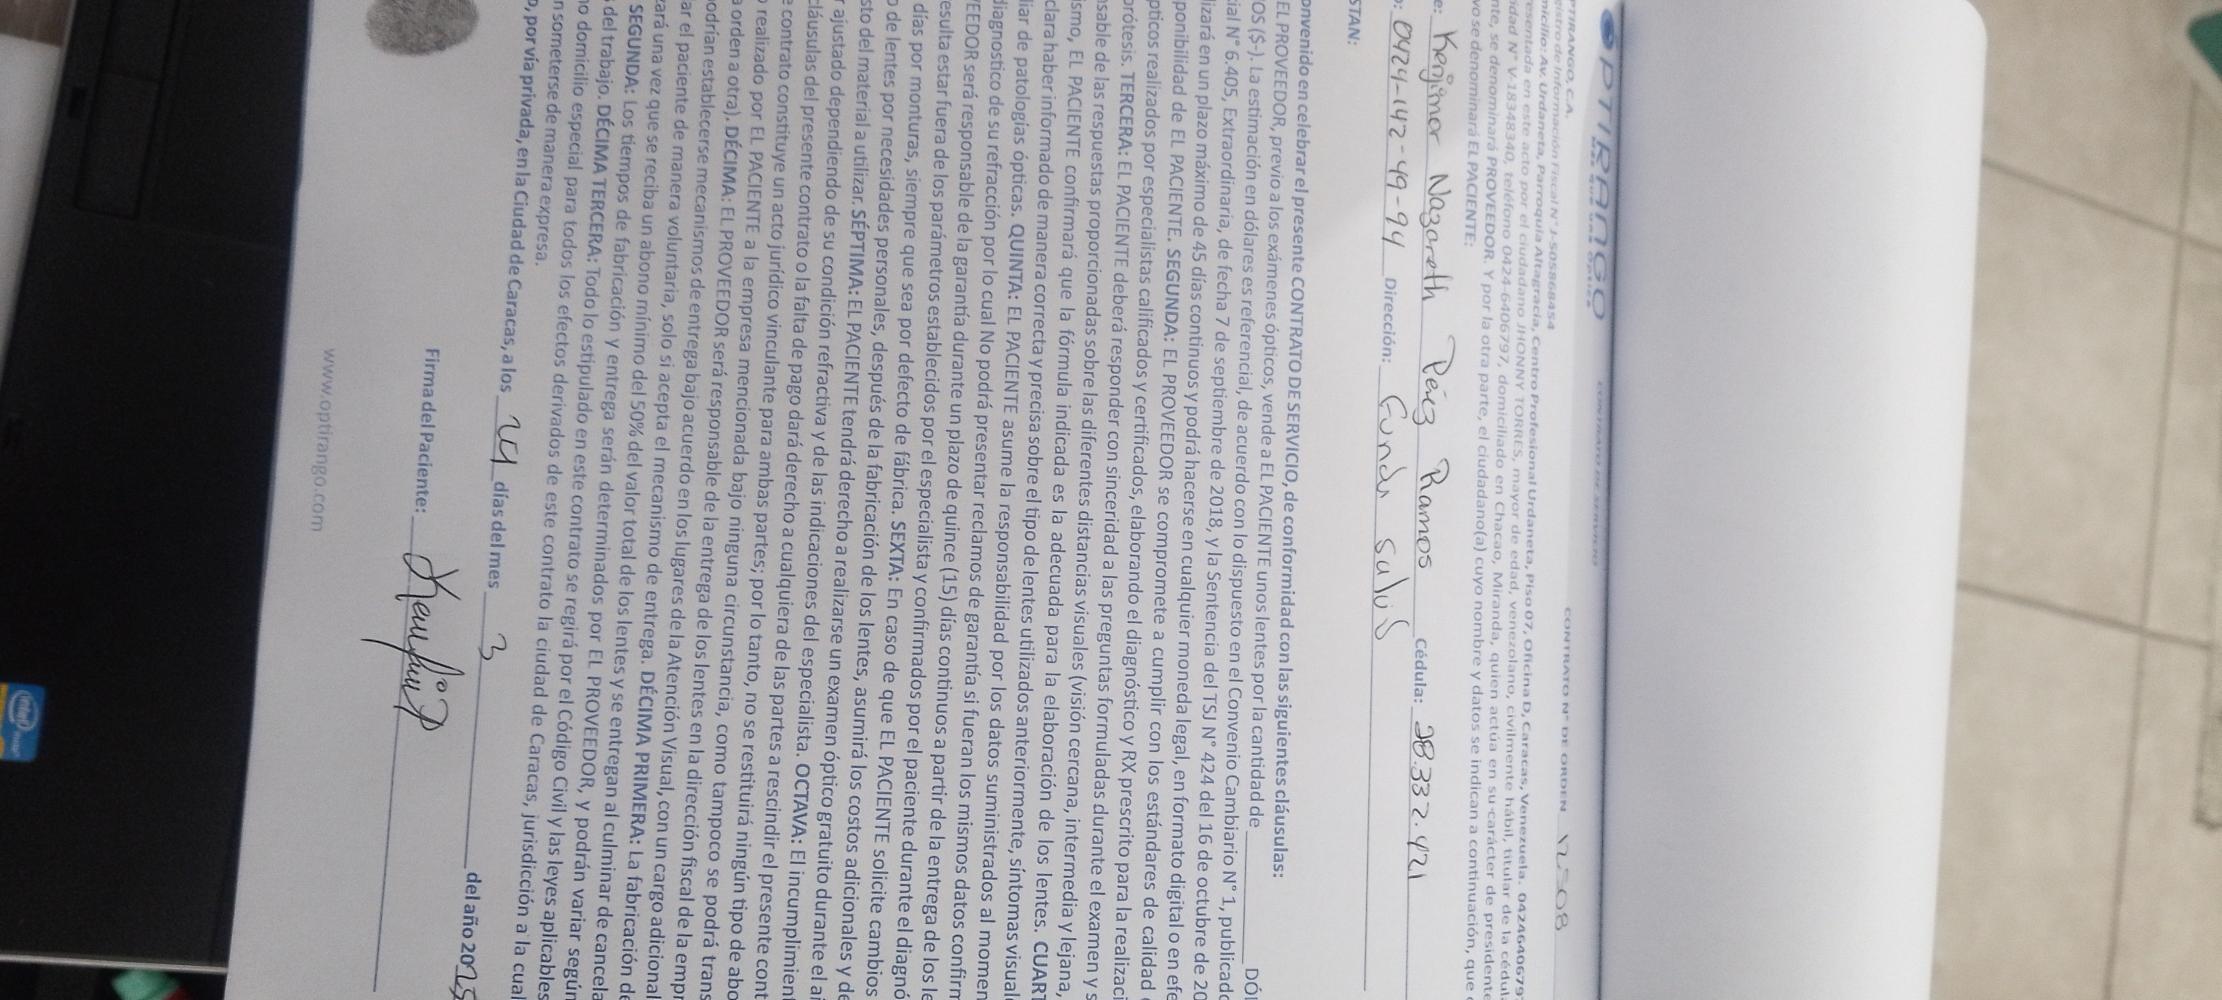 OPTIRANGO
CONTRATO DE SERVICIO
CONTRATO N° DE ORDEN 12508
PTIRANGO, C.A.
gistro de Información Fiscal N° J-505868454
micilio: Av. Urdaneta, Parroquia Altagracia, Centro Profesional Urdaneta, Piso 07, Oficina D, Caracas, Venezuela. 0424640679
esentada en este acto por el ciudadano JHONNY TORRES, mayor de edad, venezolano, civilmente hábil, titular de la cédul
idad N° V-18348340, teléfono 0424-6406797, domiciliado en Chacao, Miranda, quien actúa en su carácter de presidente
nte, se denominará PROVEEDOR. Y por la otra parte, el ciudadano(a) cuyo nombre y datos se indican a continuación, que
vo se denominará EL PACIENTE:
e: Kenjimar Nazareth Páez Ramos Cédula: 28.332.421
o: 0424-142-49-94 Dirección: Funda salud
STAN:
onvenido en celebrar el presente CONTRATO DE SERVICIO, de conformidad con las siguientes cláusulas:
EL PROVEEDOR, previo a los exámenes ópticos, vende a EL PACIENTE unos lentes por la cantidad de DÓL
OS ($-). La estimación en dólares es referencial, de acuerdo con lo dispuesto en el Convenio Cambiario N° 1, publicado
ial N° 6.405, Extraordinaria, de fecha 7 de septiembre de 2018, y la Sentencia del TSJ N° 424 del 16 de octubre de 20
lizará en un plazo máximo de 45 días continuos y podrá hacerse en cualquier moneda legal, en formato digital o en efe
ponibilidad de EL PACIENTE. SEGUNDA: EL PROVEEDOR se compromete a cumplir con los estándares de calidad
pticos realizados por especialistas calificados y certificados, elaborando el diagnóstico y RX prescrito para la realizaci
prótesis. TERCERA: EL PACIENTE deberá responder con sinceridad a las preguntas formuladas durante el examen y s
nsable de las respuestas proporcionadas sobre las diferentes distancias visuales (visión cercana, intermedia y lejana,
ismo, EL PACIENTE confirmará que la fórmula indicada es la adecuada para la elaboración de los lentes. CUART
clara haber informado de manera correcta y precisa sobre el tipo de lentes utilizados anteriormente, síntomas visual
liar de patologías ópticas. QUINTA: EL PACIENTE asume la responsabilidad por los datos suministrados al momen
diagnostico de su refracción por lo cual No podrá presentar reclamos de garantía si fueran los mismos datos confirm
VEEDOR será responsable de la garantía durante un plazo de quince (15) días continuos a partir de la entrega de los le
esulta estar fuera de los parámetros establecidos por el especialista y confirmados por el paciente durante el diagnó
días por monturas, siempre que sea por defecto de fábrica. SEXTA: En caso de que EL PACIENTE solicite cambios
o de lentes por necesidades personales, después de la fabricación de los lentes, asumirá los costos adicionales y de
sto del material a utilizar. SÉPTIMA: EL PACIENTE tendrá derecho a realizarse un examen óptico gratuito durante el añ
r ajustado dependiendo de su condición refractiva y de las indicaciones del especialista. OCTAVA: El incumplimien
cláusulas del presente contrato o la falta de pago dará derecho a cualquiera de las partes a rescindir el presente cont
e contrato constituye un acto jurídico vinculante para ambas partes; por lo tanto, no se restituirá ningún tipo de abo
o realizado por EL PACIENTE a la empresa mencionada bajo ninguna circunstancia, como tampoco se podrá trans
a orden a otra). DÉCIMA: EL PROVEEDOR será responsable de la entrega de los lentes en la dirección fiscal de la empr
podrían establecerse mecanismos de entrega bajo acuerdo en los lugares de la Atención Visual, con un cargo adicional
ar el paciente de manera voluntaria, solo si acepta el mecanismo de entrega. DÉCIMA PRIMERA: La fabricación de
zará una vez que se reciba un abono mínimo del 50% del valor total de los lentes y se entregan al culminar de cancela
SEGUNDA: Los tiempos de fabricación y entrega serán determinados por EL PROVEEDOR, y podrán variar según
del trabajo. DÉCIMA TERCERA: Todo lo estipulado en este contrato se regirá por el Código Civil y las leyes aplicables
mo domicilio especial para todos los efectos derivados de este contrato la ciudad de Caracas, jurisdicción a la cual
n someterse de manera expresa.
o, por vía privada, en la Ciudad de Caracas, a los 24 días del mes 3 del año 2025
Firma del Paciente:
www.optirango.com
intel